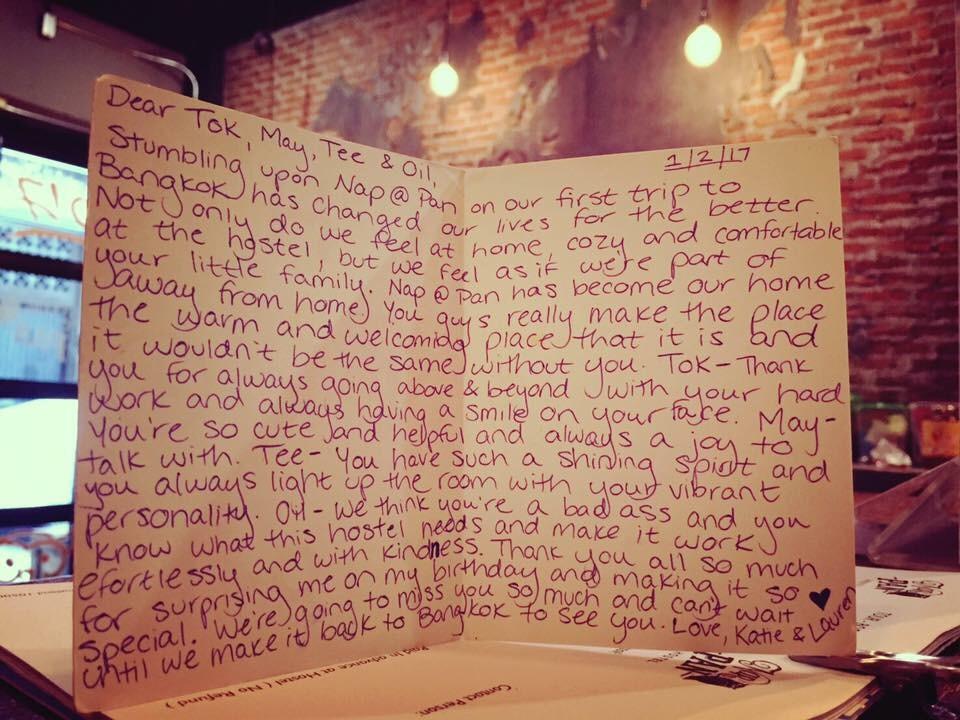 Dear Tok, May, Tee & Oil,
1/2/17
Stumbling upon Nap @ Pan on our first trip to
Bangkok has changed our lives for the better.
Not only do we feel at home, cozy and comfortable
at the hostel, but we feel as if we're part of
your little family. Nap @ Pan has become our home
away from home. You guys really make the place
the warm and welcoming place that it is and
it wouldn't be the same without you. Tok - Thank
you for always going above & beyond with your hard
work and always having a smile on your face. May -
You're so cute and helpful and always a joy to
talk with. Tee - You have such a shining spirit and
you always light up the room with your vibrant
personality. Oil - We think you're a bad ass and you
know what this hostel needs and make it work
efortlessly and with kindness. Thank you all so much
for surprising me on my birthday and making it so
special. We're going to miss you so much and can't wait
until we make it back to Bangkok to see you. Love, Katie & Lauren
Paid in advance at Hostel ( No Refund )
Contact Person:
NAP
PAN